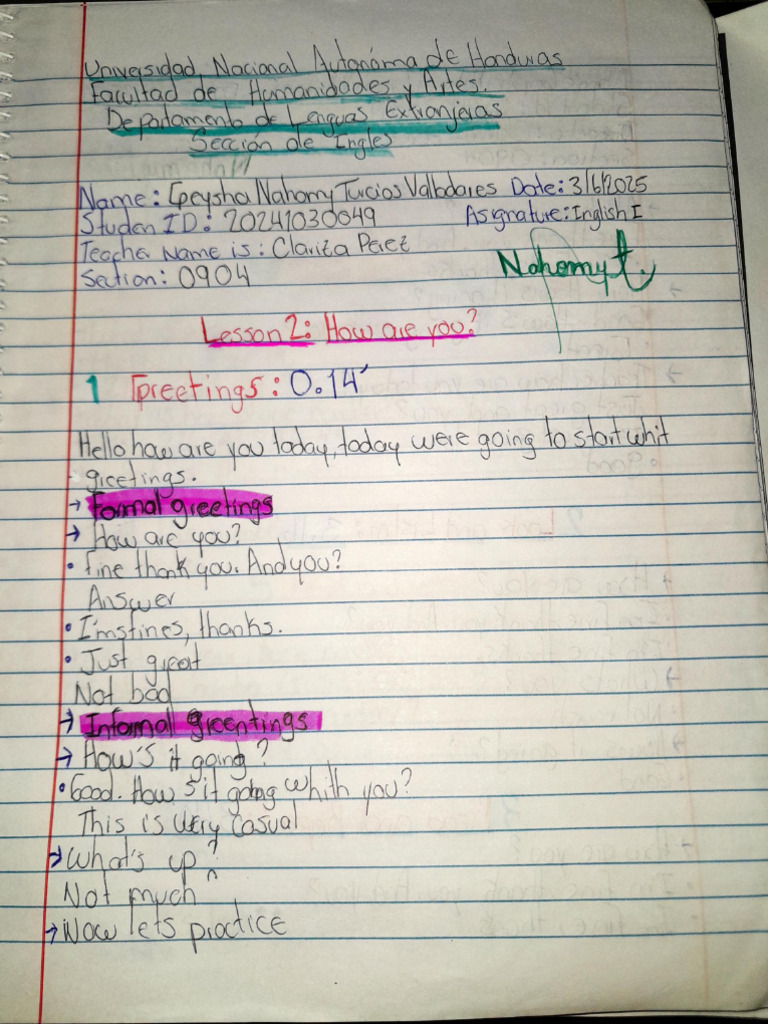 Universidad Nacional Autonóma de Honduras
Facultad de Humanidades y Artes.
Departamento de Lenguas Extranjeras
Sección de Ingles
Name: Geysha Nahomy Turcios Valladares Date: 3/6/2025
Studen ID: 20241030049 Asignature: Inglish I
Teacher Name is: Clariza Perez
Section: 0904
Nahomy t.
Lesson 2: How are you?
1 Greetings: 0.14´
Hello how are you today, today were going to start whit
greetings.
→ Formal greetings
→ How are you?
• Fine thank you. And you?
Answer
• I'm fines, thanks.
• Just great
Not bad
→ Informal greentings
→ How's it going?
• Good. How's it going whith you?
This is very casual
→ What's up?
Not much
→ Now lets practice